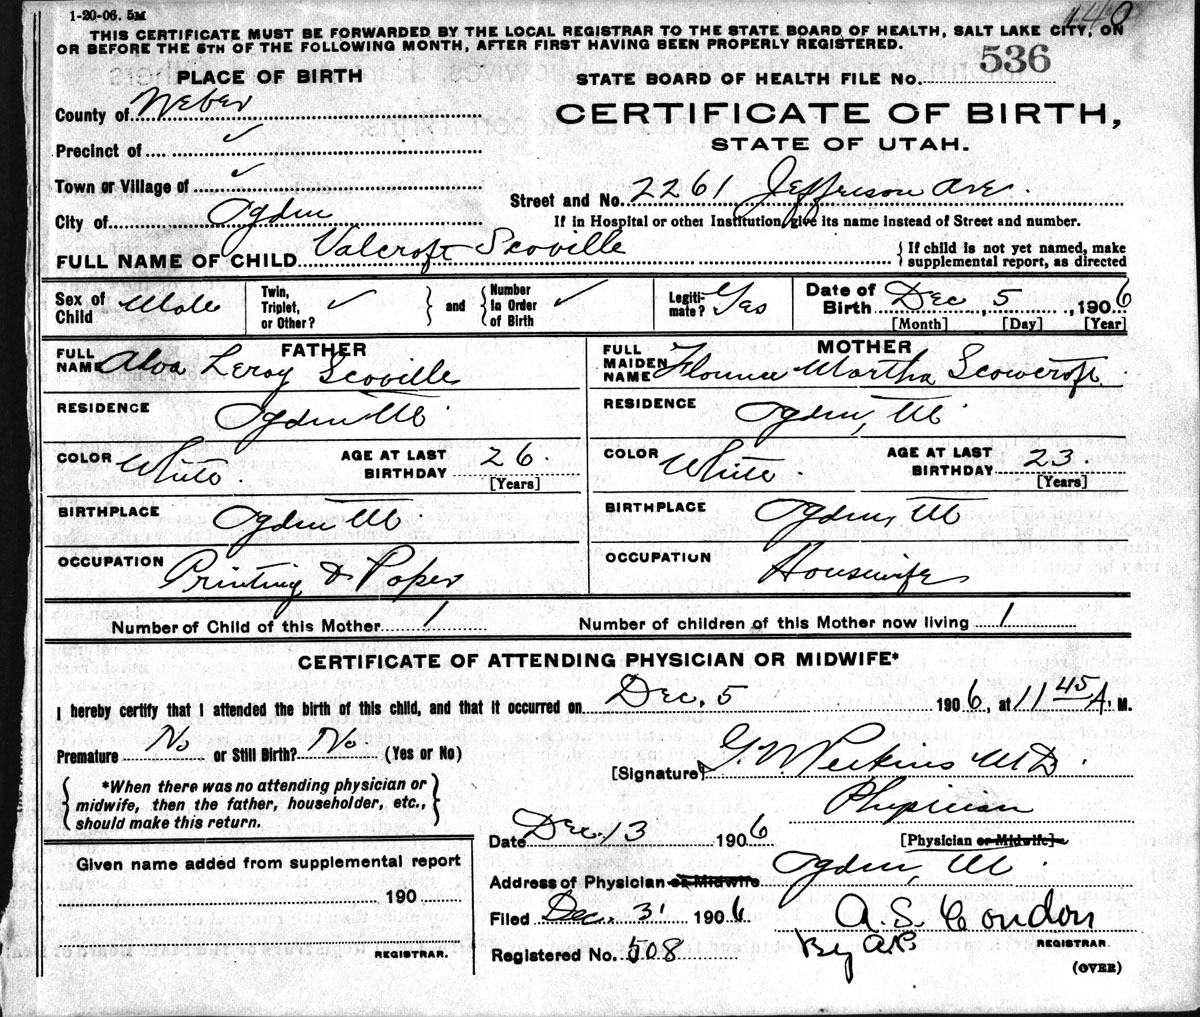 1-20-06. 5M
THIS CERTIFICATE MUST BE FORWARDED BY THE LOCAL REGISTRAR TO THE STATE BOARD OF HEALTH, SALT LAKE CITY, ON
OR BEFORE THE 5TH OF THE FOLLOWING MONTH, AFTER FIRST HAVING BEEN PROPERLY REGISTERED.
PLACE OF BIRTH
STATE BOARD OF HEALTH FILE NO. 536
County of Weber
CERTIFICATE OF BIRTH,
STATE OF UTAH.
Precinct of ✓
Town or Village of ✓
Street and No. 2261 Jefferson Ave.
City of Ogden
If in Hospital or other Institution, give its name instead of Street and number.
FULL NAME OF CHILD Valcroft Scoville
{If child is not yet named, make supplemental report, as directed
Sex of Child Male
Twin, Triplet, or Other? ✓ } and { Number In Order of Birth ✓
Legitimate? Yes
Date of Birth Dec 5, 1906
[Month] [Day] [Year]
FATHER
FULL NAME Alva Leroy Scoville
MOTHER
FULL MAIDEN NAME Florence Martha Scowcroft
RESIDENCE Ogden U
RESIDENCE Ogden, U
COLOR White
AGE AT LAST BIRTHDAY 26.
[Years]
COLOR White.
AGE AT LAST BIRTHDAY 23.
[Years]
BIRTHPLACE Ogden U
BIRTHPLACE Ogden, U
OCCUPATION Printing & Paper
OCCUPATION Housewife
Number of Child of this Mother 1
Number of children of this Mother now living 1
CERTIFICATE OF ATTENDING PHYSICIAN OR MIDWIFE*
I hereby certify that I attended the birth of this child, and that it occurred on Dec. 5 1906, at 11 45 A. M.
Premature No or Still Birth? No. (Yes or No)
[Signature] G. W. Perkins MD.
{ *When there was no attending physician or midwife, then the father, householder, etc., should make this return. }
Physician
[Physician or Midwife]
Date Dec. 13 1906
Given name added from supplemental report
190
REGISTRAR.
Address of Physician or Midwife Ogden, U
Filed Dec. 31 1906
A. S. Condon
REGISTRAR
Registered No. 508
By
(OVER)